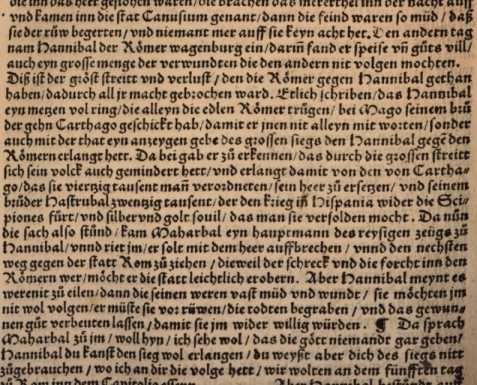 die inn das heer geflohen waren/die brachen das merertheil inn der nacht auff
vnd kamen inn die stat Canusium genant/dann die feind waren so müd/daß
sie der rüw begerten/vnd niemant mer auff sie keyn acht het. Den andern tag
nam Hannibal der Römer wagenburg ein/dariñ fand er speise vñ gůts vill/
auch eyn grosse menge der verwundten die den andern nit volgen mochten.
Diß ist der gröst streitt vnd verlust/den die Römer gegen Hannibal gethan
haben/dadurch all jr macht gebrochen ward. Etlich schriben/das Hannibal
eyn metzen vol ring/die alleyn die edlen Römer trügen/bei Mago seinem brů
der gehn Carthago geschickt hab/damit er jnen nit alleyn mit worten/sonder
auch mit der that eyn anzeygen gebe des grossen siegs den Hannibal gegē den
Römern erlangt hett. Da bei gab er zů erkennen/das durch die grossen streitt
sich sein volck auch gemindert hett/vnd erlangt damit von den von Cartha-
go/das sie viertzig tausent mañ verordneten/sein heer zů ersetzen/vnd seinem
brůder Hastrubal zwenzig tausent/der den krieg iñ Hispania wider die Sci-
piones fürt/vnd silber vnd golt souil/das man sie versolden mocht. Da nůn
die sach also stůnd/kam Maharbal eyn hauptmann des reysigen zeügs zů
Hannibal/vnnd riet jm/er solt mit dem heer auffbrechen/vnnd den nechsten
weg gegen der statt Rom zů ziehen/dieweil der schreck vnd die forcht inn den
Römern wer/möcht er die statt leichtlich erobern. Aber Hannibal meynt es
were nit zů eilen/dann die seinen weren vast müd vnd wundt/sie möchten jm
nit wol volgen/er müste sie vor rüwen/die todten begraben/vnd das gewun-
nen gůt verbeuten lassen/damit sie jm wider willig würden. ¶ Da sprach
Maharbal zů jm/woll hyn/ich sehe wol/das die gött niemandt gar geben/
Hannibal du kanst den sieg wol erlangen/du weyst aber dich des siegs nitt
zůgebrauchen/wo ich an dir die volge hett/wir wolten an dem fünfften tag
zů Rom inn dem Capitolio essen. Aber Hannibal